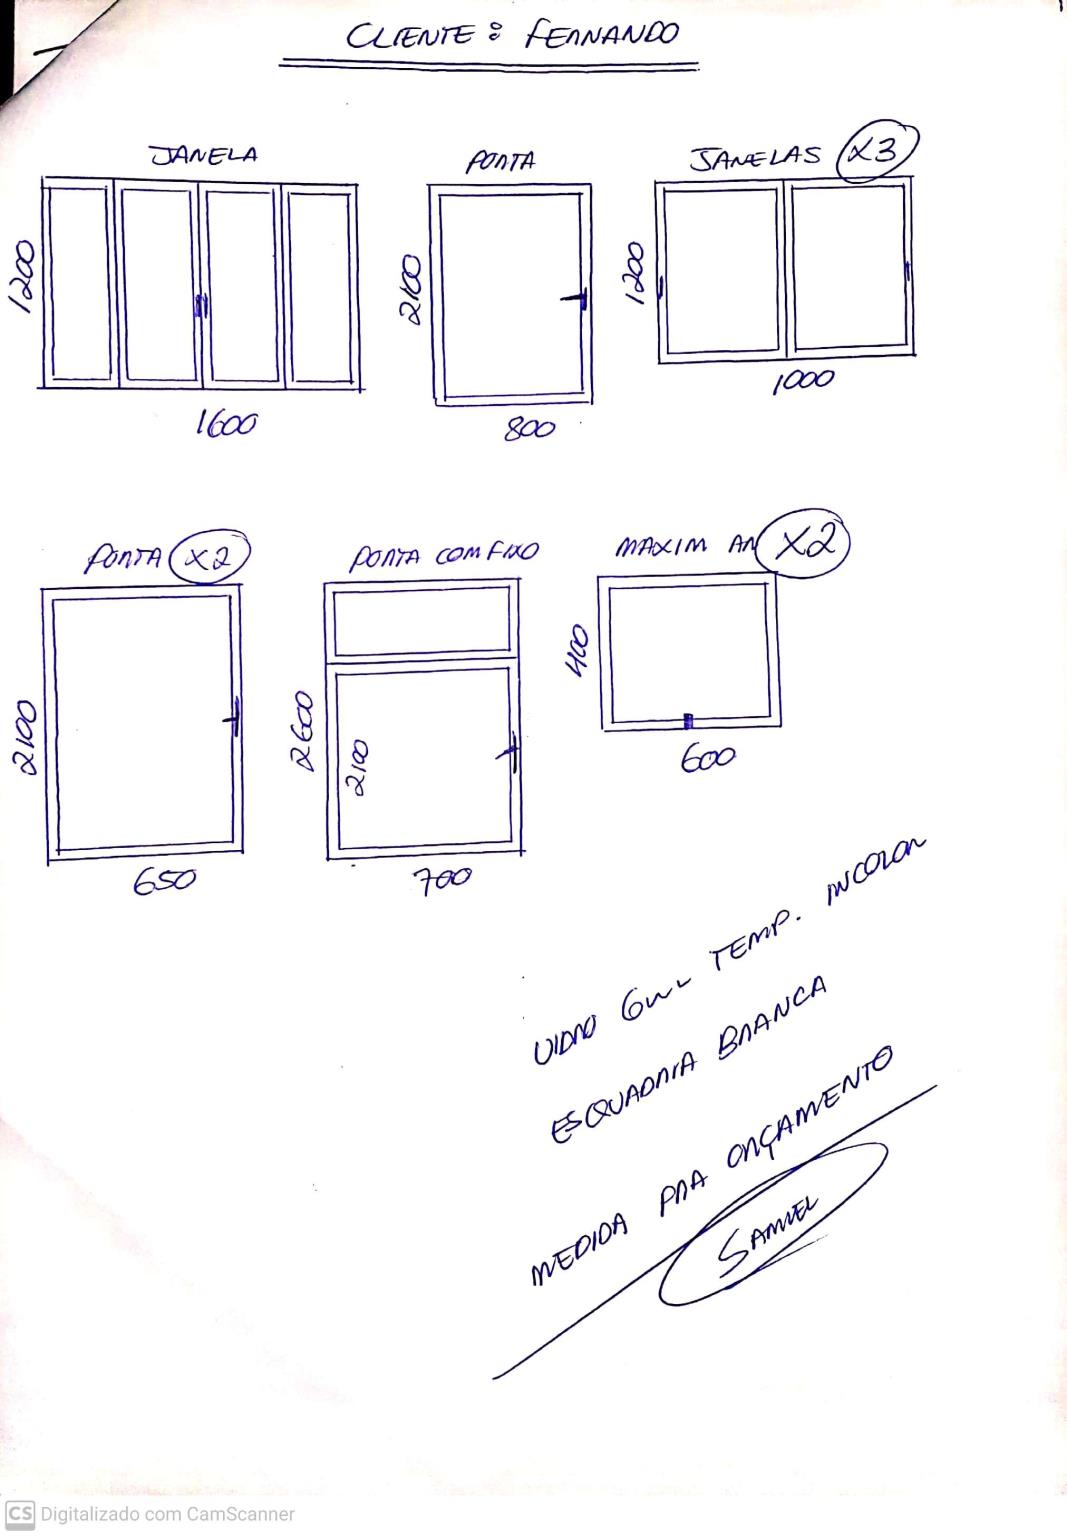 CLIENTE: FERNANDO
JANELA
1200
1600
PORTA
2100
800
JANELAS X3
1200
1000
PORTA X2
2100
650
PORTA COM FIXO
2600
2100
700
MAXIM AR X2
400
600
VIDRO 6mm TEMP. INCOLOR
ESQUADRIA BRANCA
MEDIDA PRA ORÇAMENTO
SAMUEL
CS Digitalizado com CamScanner